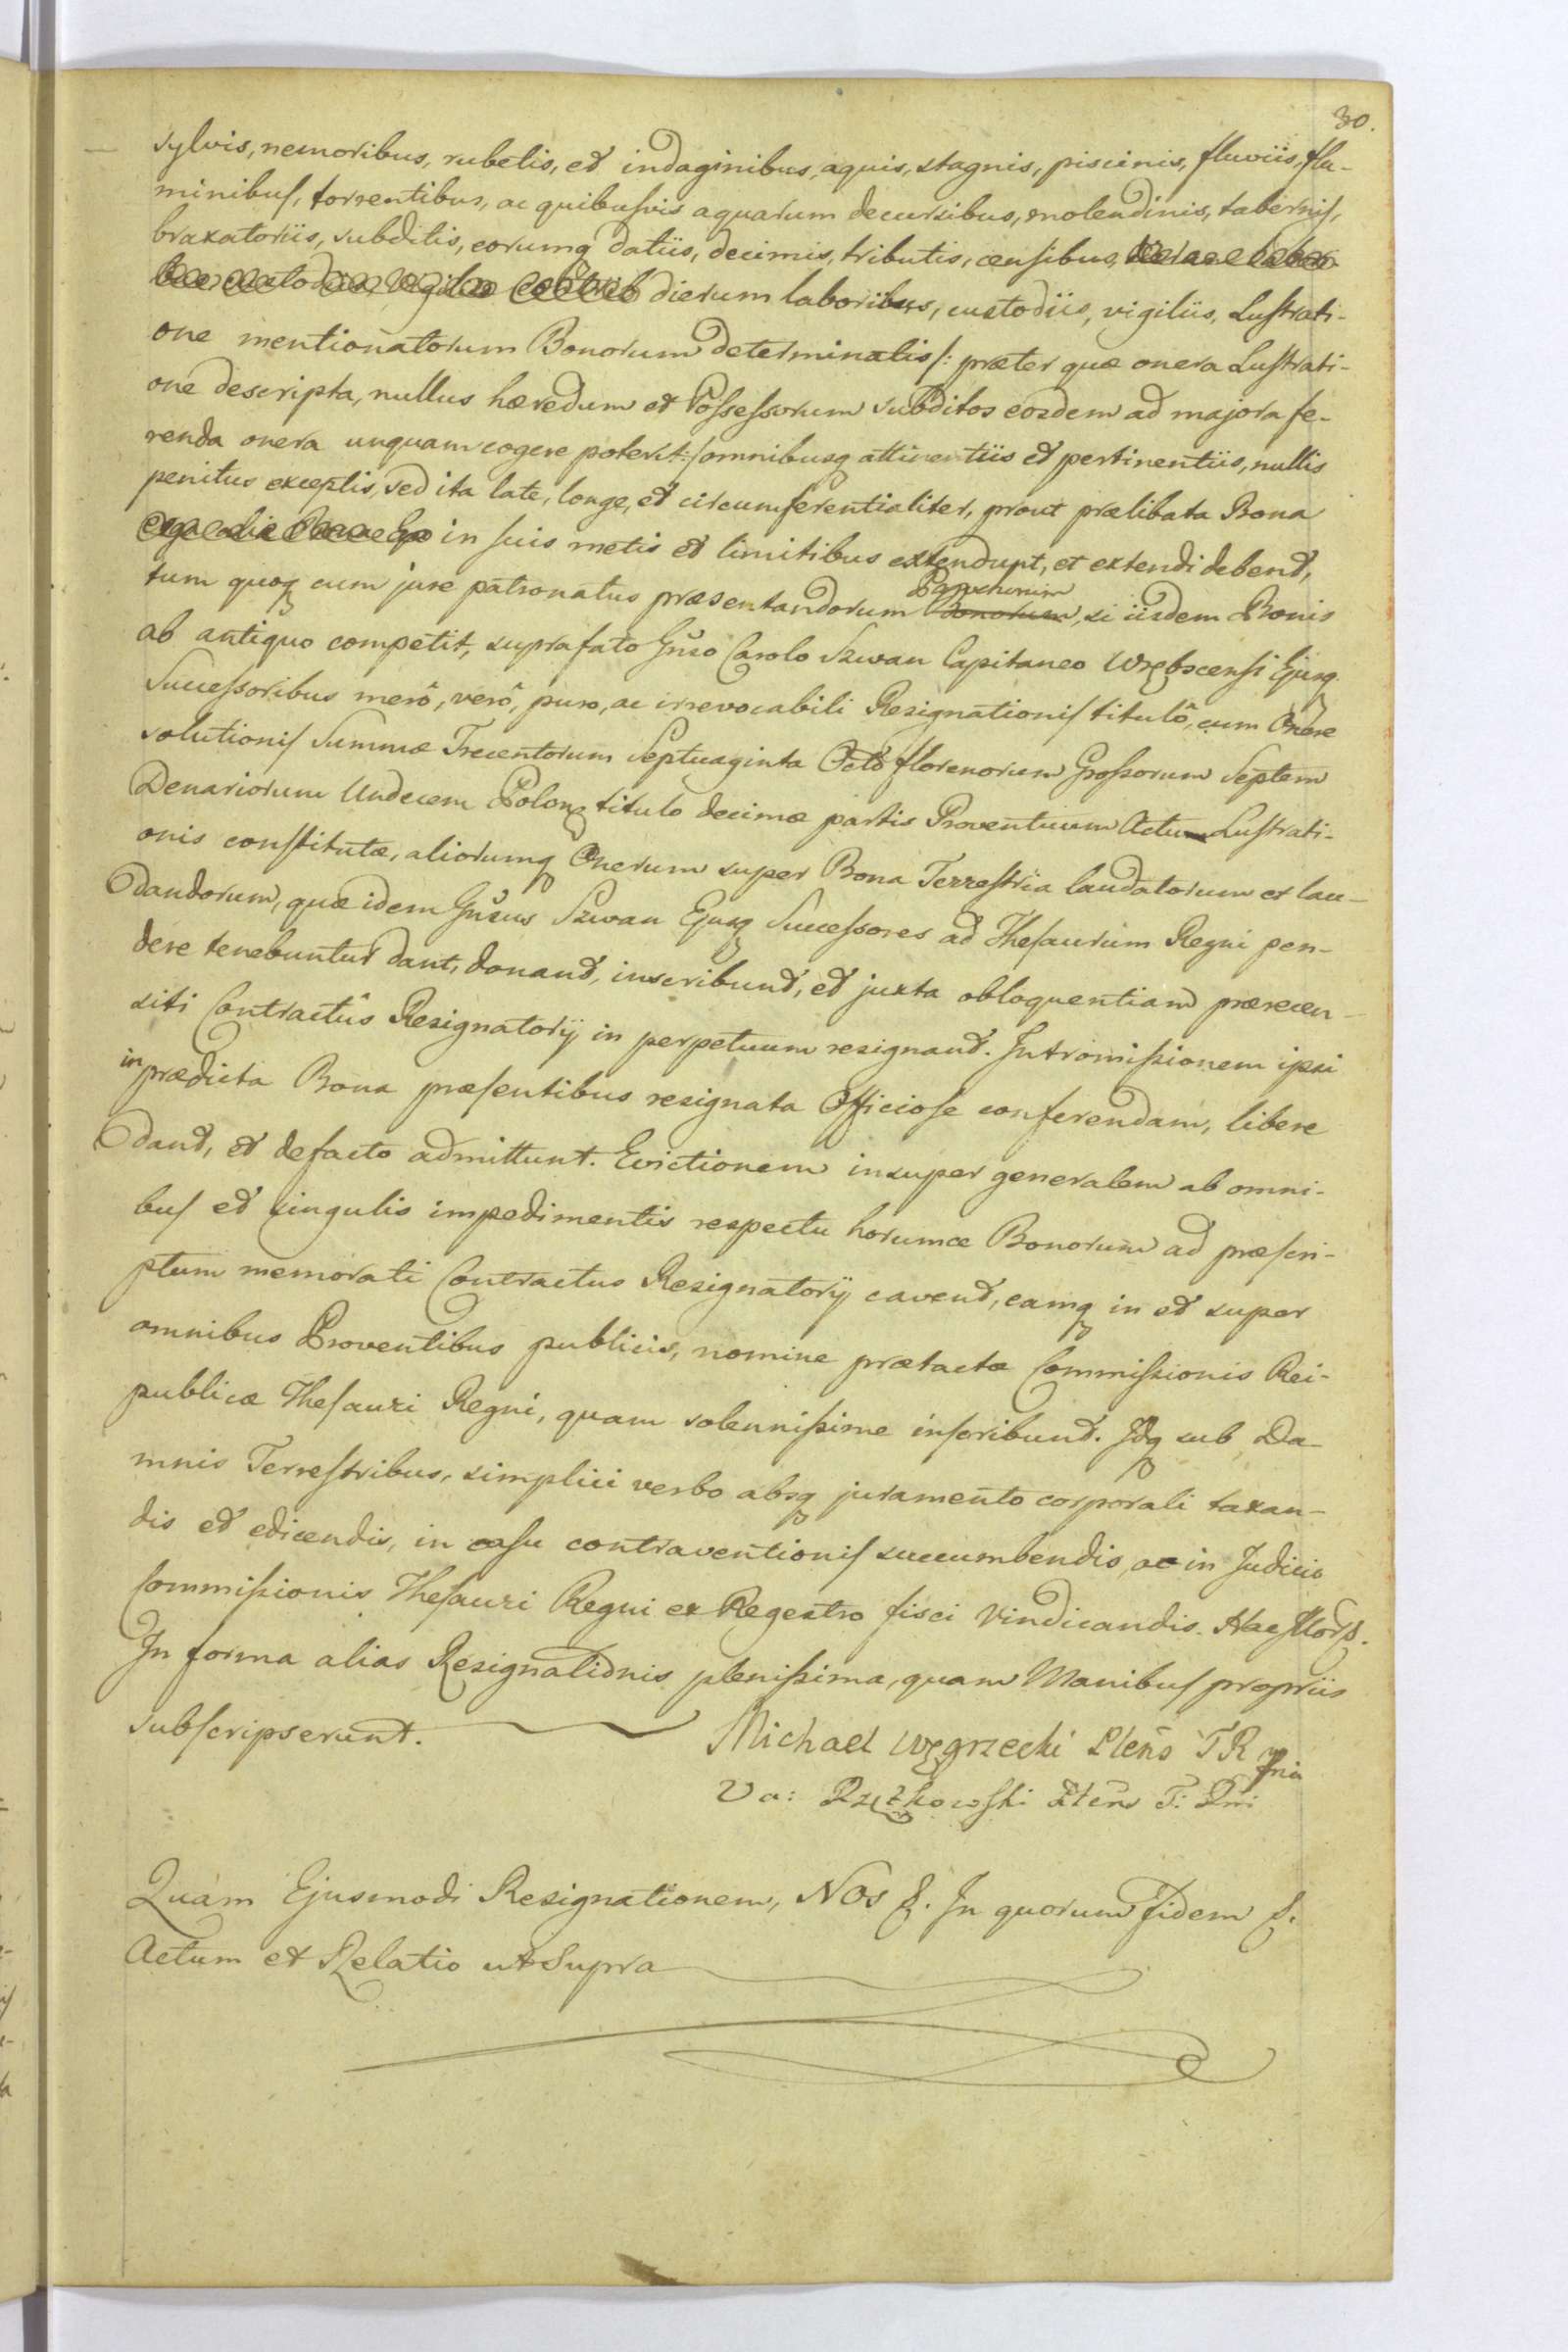 30.
sylvis, nemoribus, rubetis, et indaginibus, aquis, stagnis, piscinis, fluviis, flu-
minibus, torrentibus, ac quibusvis aquarum decursibus, molendinis, tabernis,
braxatoriis, subditis, eorumq datiis, decimis, tributis, censibus,
dierum laboribus, custodiis, vigiliis, Lustrati-
one mentionatorum Bonorum determinatis /: præter quæ onera Lustrati-
one descripta, nullus hæredum et Possessorum subditos eosdem ad majora fe-
renda onera unquam cogere poterit :/ omnibusq attinentiis et pertinentiis, nullis
penitus exceptis, sed ita late, longe, et circumferentialiter, prout prælibata Bona
in suis metis et limitibus extendunt, et extendi debent,
tum quoq cum jure patronatus præsentandorum Parochorum, si iisdem Bonis
ab antiquo competit, suprafato Gnso Carolo Szwan Capitaneo Wrębscensi Ejusq
Successoribus merô, verô, puro, ac irrevocabili Resignationis titulô, cum Onere
solutionis Summæ Trecentorum Septuaginta Octo florenorum Grossorum Septem
Denariorum Undecem Polonq titulo decimæ partis Proventuum Actu Lustrati-
onis constitutæ, aliorumq Onerum super Bona Terrestria laudatorum et lau-
dandorum, quæ idem Gnsus Szwan Ejusq Successores ad Thesaurum Regni pen-
dere tenebuntur dant, donant, inscribunt, et juxta obloquentiam præcen-
siti Contractûs Resignatorij in perpetuum resignant. Intromissionem ipsi
in prædicta Bona præsentibus resignata Officiose conferendam, libere
dant, et defacto admittunt. Evictionem insuper generalem ab omni-
bus et singulis impedimentis respectu horumce Bonorum ad præscri-
ptum memorati Contractus Resignatorij cavent, eamq in et super
omnibus Proventibus publicis, nomine prætactæ Commissionis Rei-
publicæ Thesauri Regni, quam solennissime inscribunt. Idq sub Da-
mnis Terrestribus, simplici verbo absq juramento corporali taxan-
dis et edicendis, in casu contraventionis succumbendis, ac in Judicio
Commissionis Thesauri Regni ex Regestro fisci vindicandis.
In forma alias Resignationis plenissima, quam Manibus propriis
subscripserunt. Michael Węgrzecki Plens T R
Va: Rzętkowski T:
Quam Ejusmodi Resignationem, Nos &. In quorum Fidem &.
Actum et Relatio ut Supra